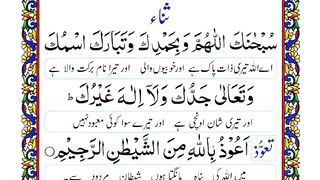 ثناء
سُبْحٰنَكَ اللّٰهُمَّ وَبِحَمْدِكَ وَتَبَارَكَ اسْمُكَ
اے اللہ تیری ذات پاک ہے اور خوبیوں والی اور تیرا نام برکت والا ہے
وَتَعَالٰى جَدُّكَ وَلَآ اِلٰهَ غَيْرُكَ ط
اور تیری شان اونچی ہے اور تیرے سوا کوئی معبود نہیں
تعوّذ اَعُوْذُ بِاللّٰهِ مِنَ الشَّيْطٰنِ الرَّجِيْمِ ○
میں اللہ کی پناہ مانگتا ہوں شیطان مردود سے